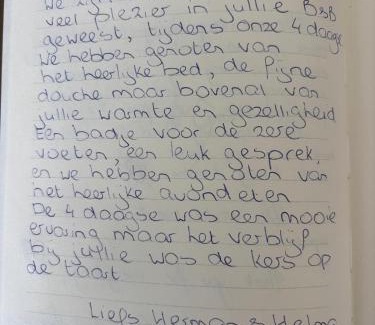 We
veel plezier in jullie B&B
geweest, tijdens onze 4 daagse
We hebben genoten van
het heerlijke bed, de fijne
douche maar bovenal van
jullie warmte en gezelligheid
Een badje voor de zere
voeten, een leuk gesprek,
en we hebben genoten van
het heerlijke avondeten
De 4 daagse was een mooie
ervaring maar het verblijf
bij jullie was de kers op
de taart
Liefs Herman & Helma